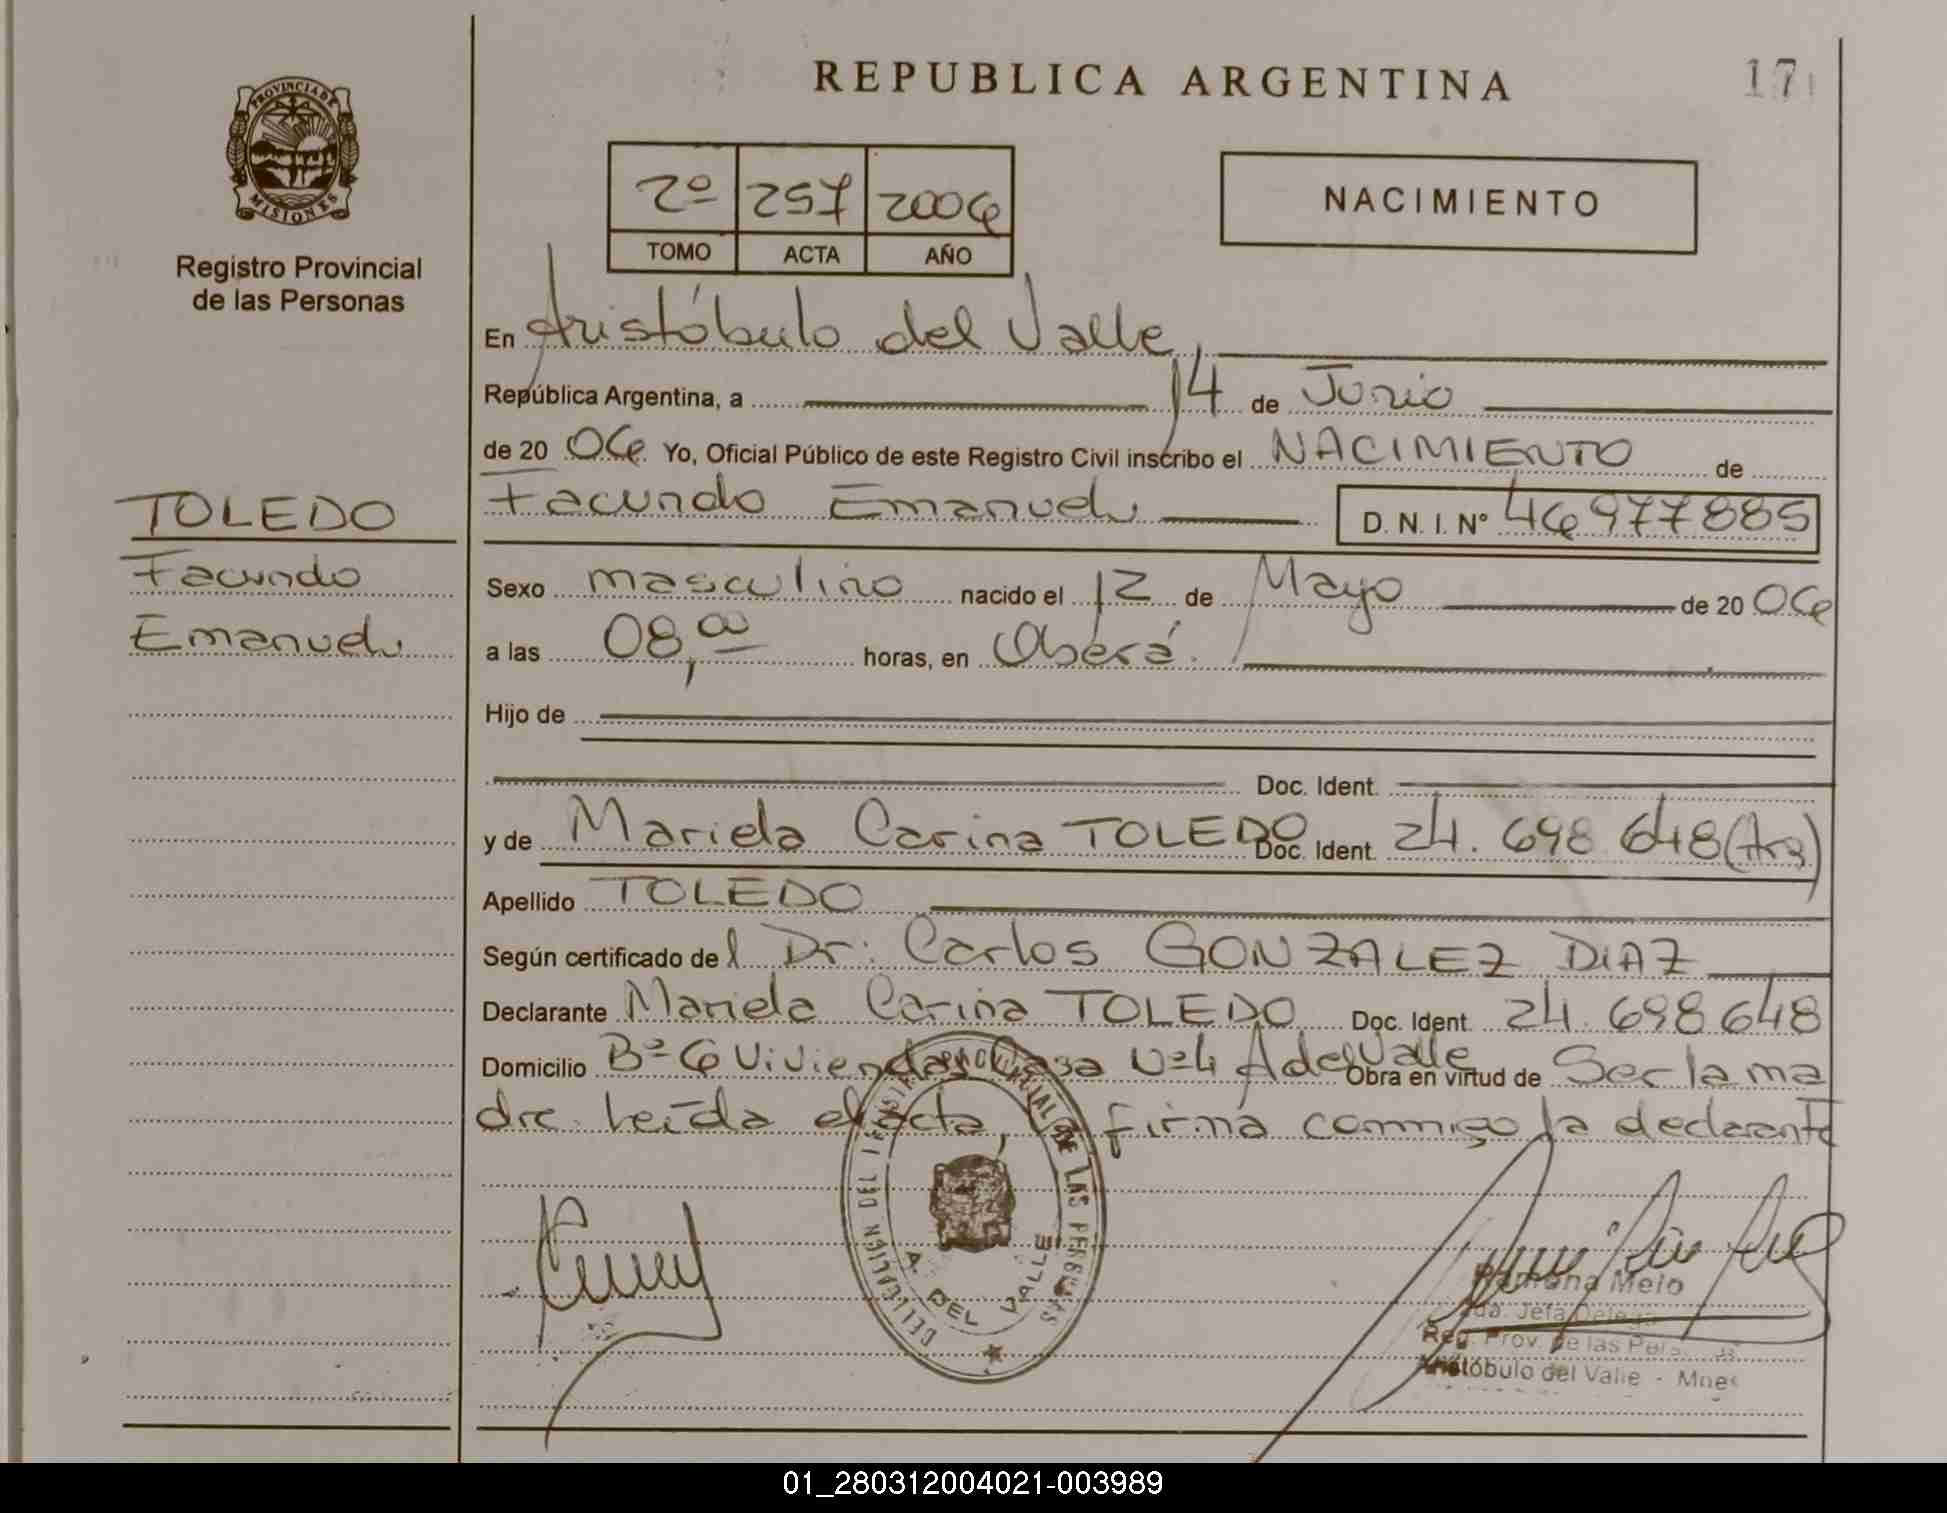 REPUBLICA ARGENTINA
17
PROVINCIA DE
MISIONES
Registro Provincial
de las Personas
2º 257 2006
TOMO ACTA AÑO
NACIMIENTO
En Aristóbulo del Valle,
República Argentina, a 14 de Junio
de 20 06 Yo, Oficial Público de este Registro Civil inscribo el NACIMIENTO de
Facundo Emanuel D. N. I. Nº 46977885
TOLEDO
Facundo
Emanuel
Sexo masculino nacido el 12 de Mayo de 20 06
a las 08,00 horas, en Oberá.
Hijo de
Doc. Ident.
y de Mariela Carina TOLEDO Doc. Ident. 24.698 648 (Arg)
Apellido TOLEDO
Según certificado del Dr. Carlos GONZALEZ DIAZ
Declarante Mariela Carina TOLEDO Doc. Ident. 24.698648
Domicilio Bº 6 Viviendas Casa Nº4 A del Valle Obra en virtud de Ser la ma
dre. Leída el acta, firma conmigo la declarante
DELEGACION DEL REGISTRO PROVINCIAL DE LAS PERSONAS
A. DEL VALLE
Ramona Melo
Jefa
Reg. Prov. de las
Aristóbulo del Valle - Mnes
01_280312004021-003989